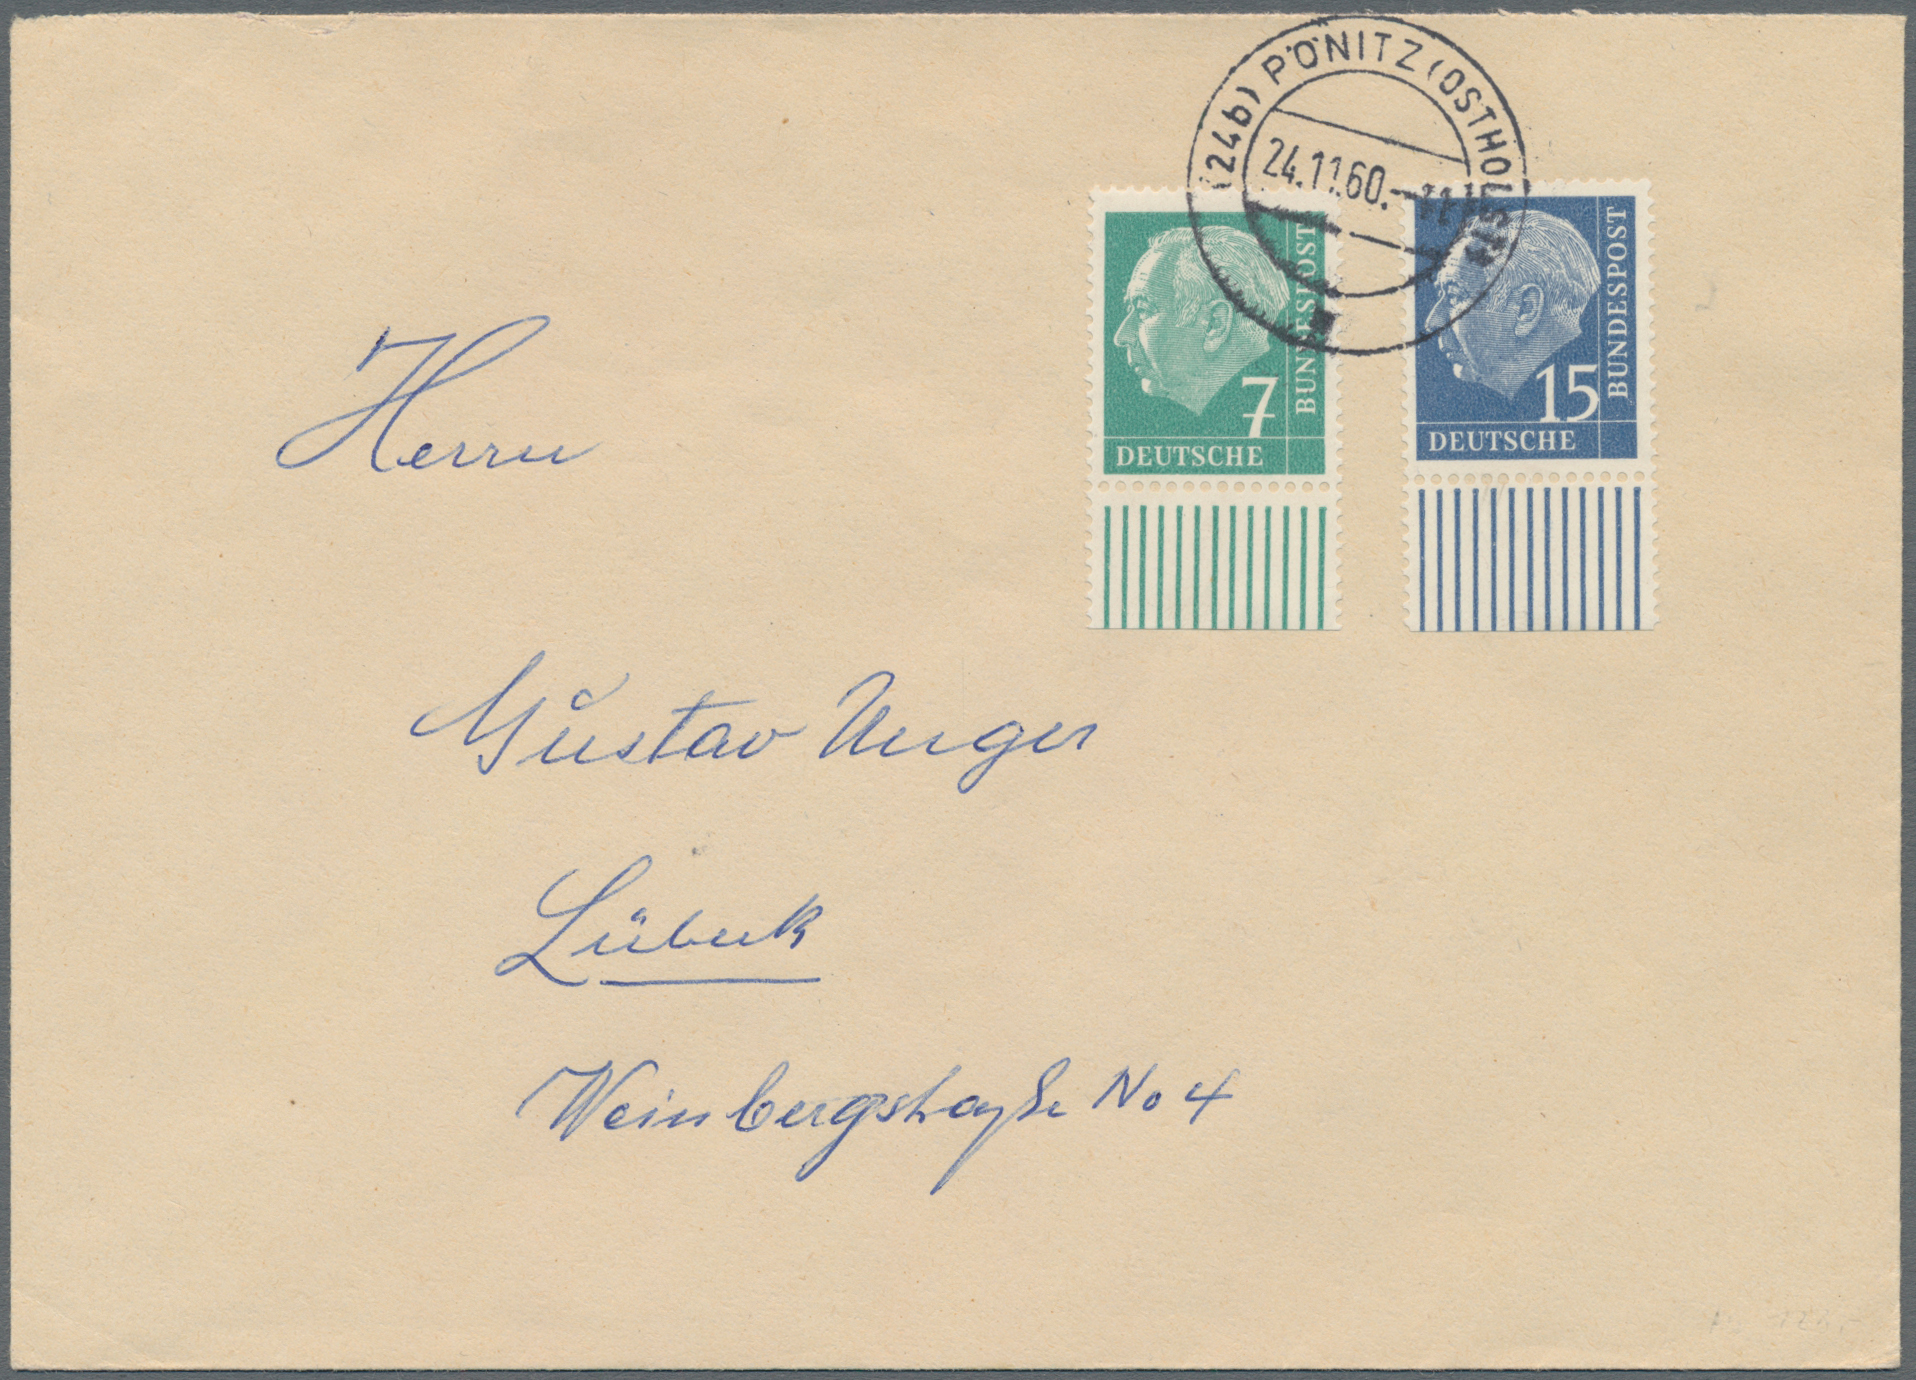 (24b) PÖNITZ (OSTHOLST)
24.11.60.-11
7
BUNDESPOST
DEUTSCHE
15
BUNDESPOST
DEUTSCHE
Herrn
Gustav Unger
Lübeck
Weinbergstraße No 4